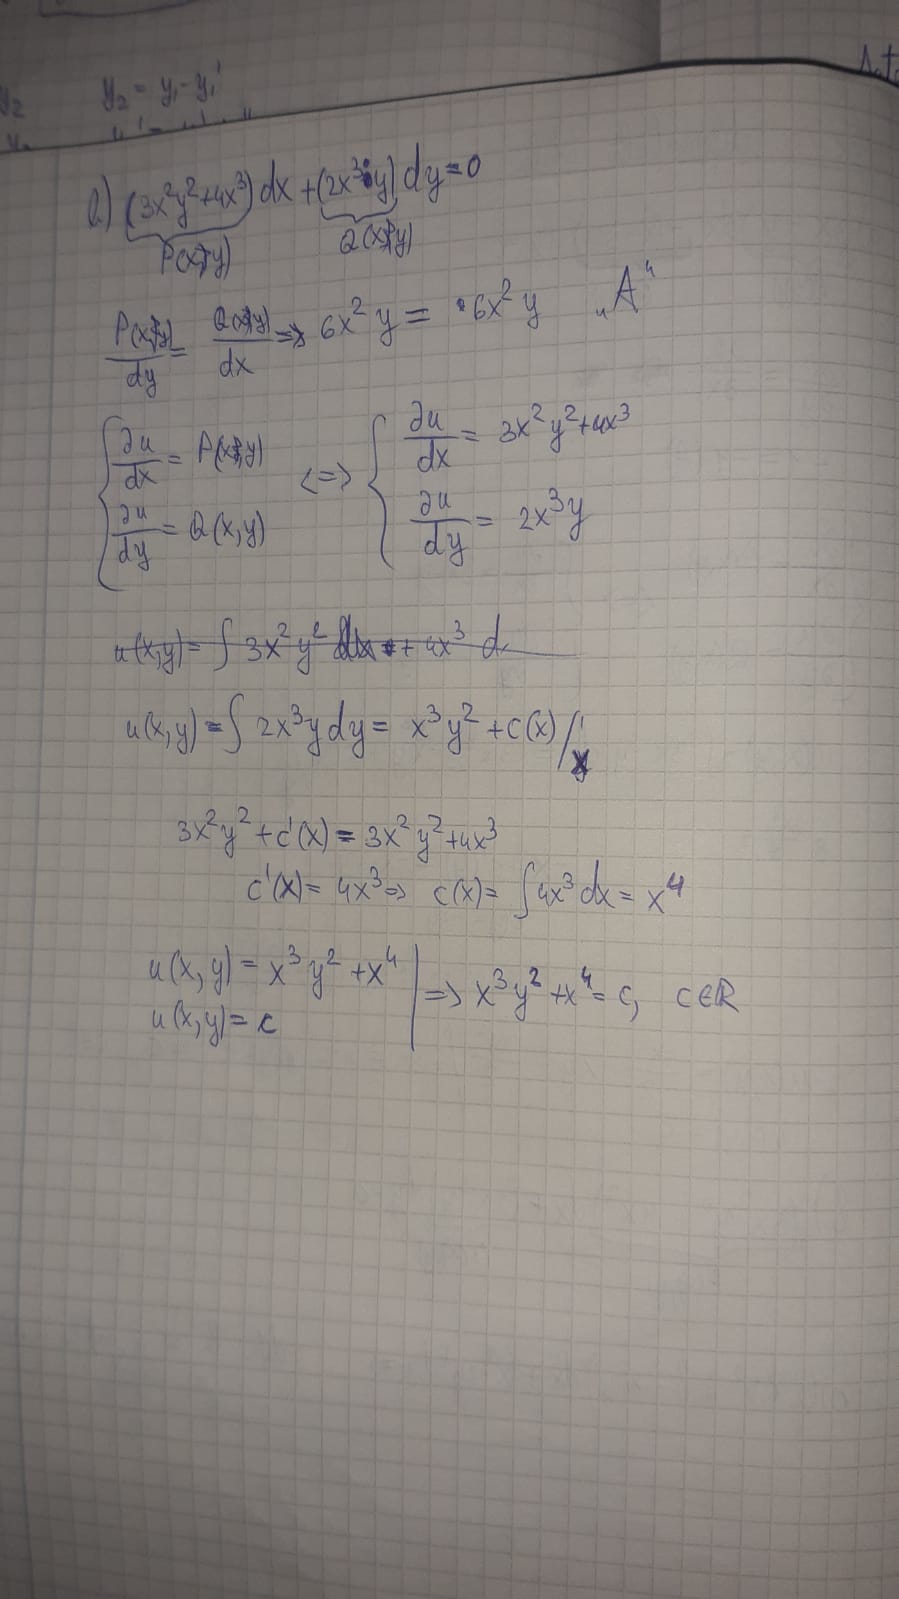 y₂ y₂ = y₁ - y₁'
a) (3x²y²+4x³) dx + (2x³y) dy = 0
P(x,y) Q(x,y)
P(x,y)/dy = Q(x,y)/dx => 6x²y = 6x²y „A“
{ ∂u/dx = P(x,y) <=> { ∂u/dx = 3x²y²+4x³
∂u/dy = Q(x,y) ∂u/dy = 2x³y
u(x,y) = ∫ 3x²y² dx + 4x³ d
u(x,y) = ∫ 2x³y dy = x³y² + c(x) /'x
3x²y² + c'(x) = 3x²y² + 4x³
c'(x) = 4x³ => c(x) = ∫ 4x³ dx = x⁴
u(x,y) = x³y² + x⁴ | => x³y² + x⁴ = c, c∈R
u(x,y) = c